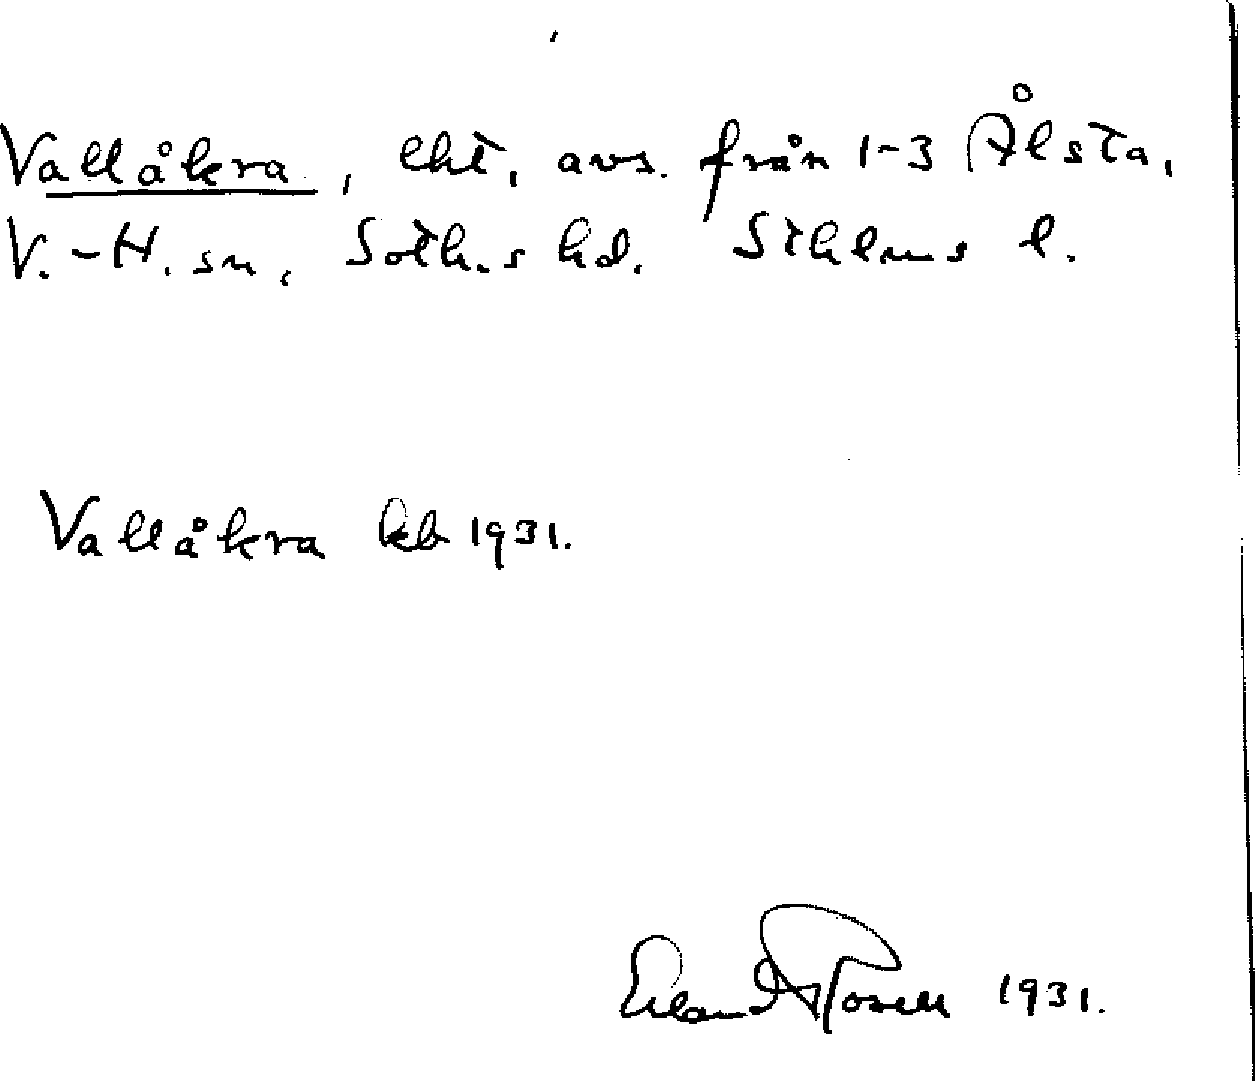 Vallåkra, lht, avs. från 1-3 Ålsta,
V.-H. sn, Soth.s hd. Sthlms l.
Vallåkra kb 1931.
Erland Rosell 1931.